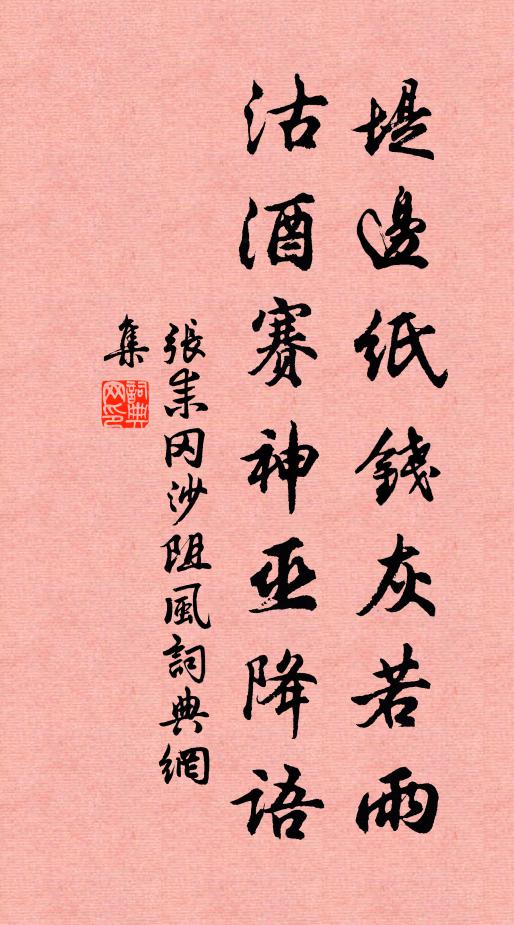 堤邊紙錢灰若雨
沽酒賽神巫降語
張耒罔沙阻風詞典網
集
詞典網印